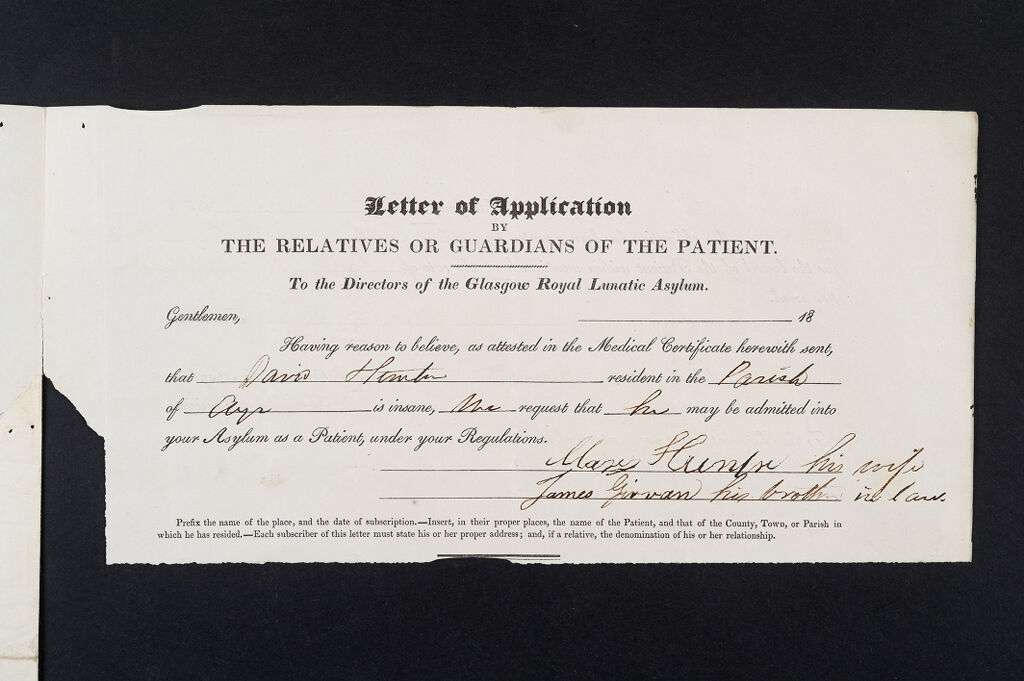 Letter of Application
BY
THE RELATIVES OR GUARDIANS OF THE PATIENT.
To the Directors of the Glasgow Royal Lunatic Asylum.
Gentlemen, 18
Having reason to believe, as attested in the Medical Certificate herewith sent,
that David Hunter resident in the Parish
of Ayr is insane, We request that he may be admitted into
your Asylum as a Patient, under your Regulations.
Mary Hunter his wife
James Girvan his brother in law.
Prefix the name of the place, and the date of subscription.—Insert, in their proper places, the name of the Patient, and that of the County, Town, or Parish in
which he has resided.—Each subscriber of this letter must state his or her proper address; and, if a relative, the denomination of his or her relationship.